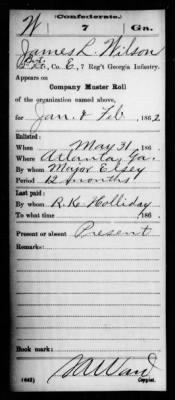 (Confederate.)
W 7 Ga.
James L. Wilson
Pvt., Co. E, 7 Reg't Georgia Infantry.
Appears on
Company Muster Roll
of the organization named above,
for Jan. & Feb, 1862
Enlisted:
When May 31, 186 .
Where Atlanta, Ga.
By whom Major
Period 12 months
Last paid:
By whom R. K. Holliday
To what time , 186 .
Present or absent Present
Remarks:
Book mark:
(642)
Copyist.